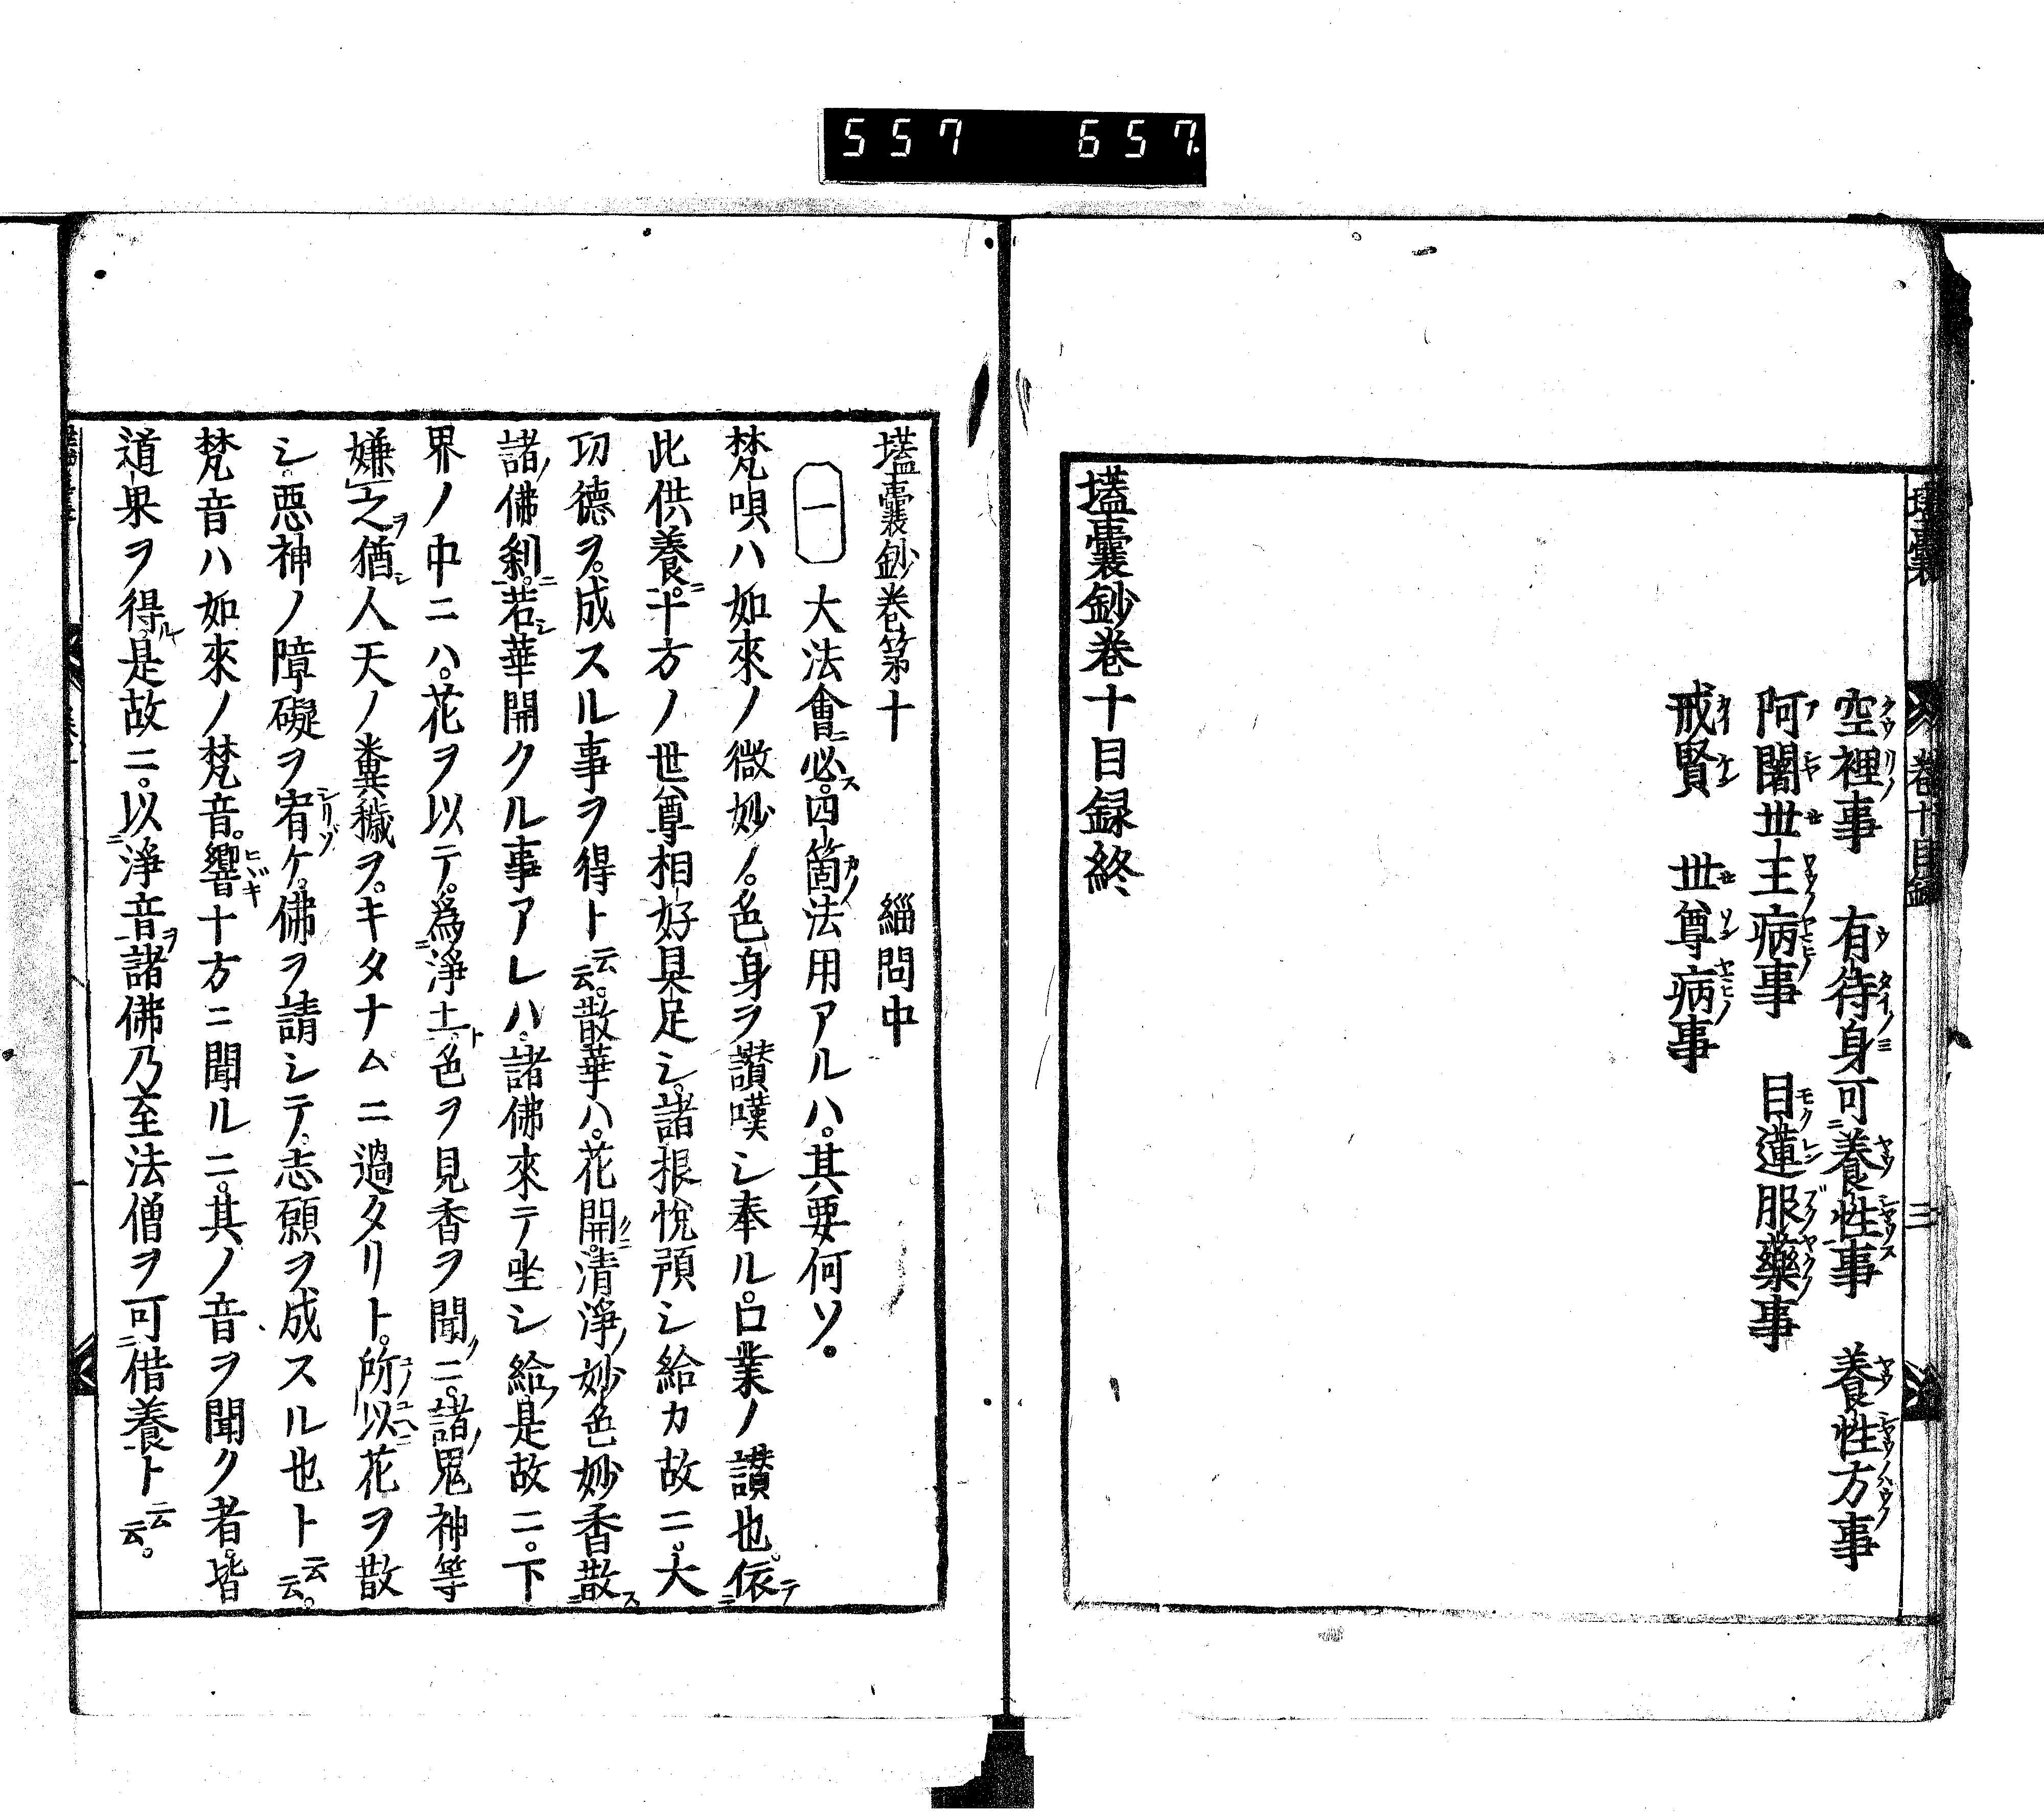 557 657
空裡事 有待身可養性事 養性方事
阿闍世王病事 目蓮服藥事
戒賢 世尊病事
壒囊鈔卷十目録終
壒囊鈔卷第十 緇問中
一 大法會ニ必ス。四箇ノ法用アルハ。其要何ソ。
梵唄ハ如來ノ微妙ノ。色身ヲ讃嘆シ奉ル。口業ノ讃也。依テ
此供養ニ。十方ノ世尊相好具足シ。諸根悅預シ給カ故ニ。大
功德ヲ。成スル事ヲ得ト云云。散華ハ。花開クニ。清淨ノ妙色妙香散ス
諸ノ佛刹ニ。若シ華開クル事アレハ。諸佛來テ坐シ給フ。是故ニ。下
界ノ中ニハ。花ヲ以テ。爲淨土ト。色ヲ見香ヲ聞クニ。諸ノ鬼神等
嫌之ヲ猶シ人天ノ糞穢ヲ。キタナムニ過タリト。所以ニ花ヲ散
シ。惡神ノ障礙ヲ宥ケ。佛ヲ請シテ。志願ヲ成スル也ト云云。
梵音ハ如來ノ梵音。響十方ニ聞ルニ。其ノ音ヲ聞ク者。皆
道果ヲ得ル。是故ニ。以淨音ヲ諸佛乃至法僧ヲ可借養ト云云。